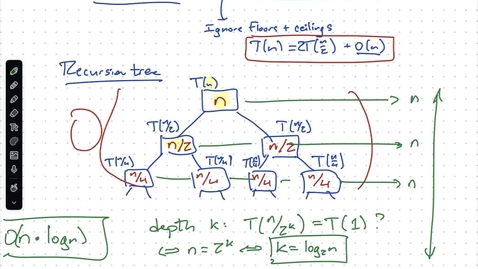 Ignore Floors + ceilings
T(n) = 2T(n/2) + O(n)
Recursion tree
T(n)
n → n
T(n/2) T(n/2)
n/2 n/2 → n
T(n/4) T(n/4) T(n/4)
n/4 n/4 n/4 n/4 → n
O
O(n · log n)
depth k: T(n/2^k) = T(1) ?
⇔ n = 2^k ⇔ k = log₂n